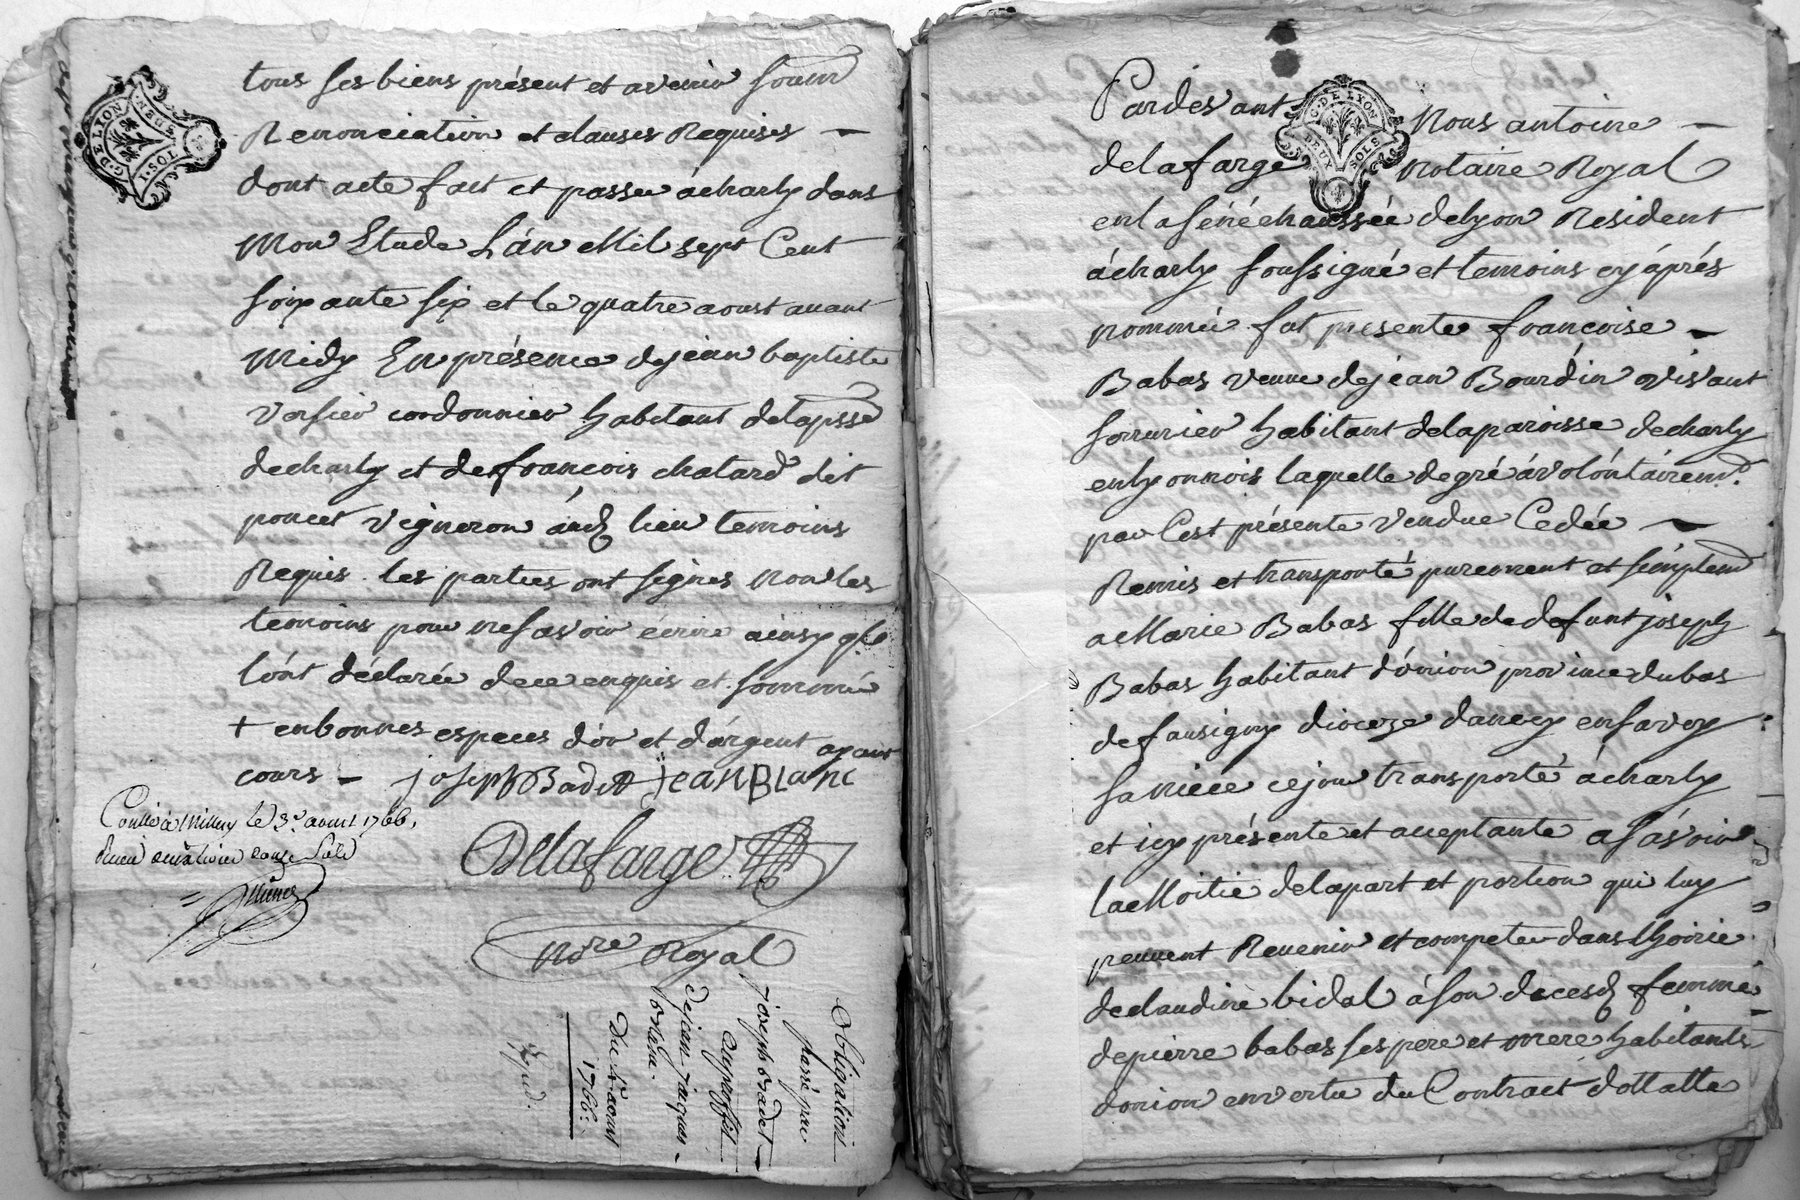 G. DE LYON
1. SOL
tous ses biens présent et avenir soum
Renonciation et clauses Requises –
dont acte fait et passé à charly dans
Mon Etude L'an Mil sept Cent
soixante six et le quatre aoust avant
Midy En présence de jean baptiste
cordonnier habitant de la psse
de charly et de francois chatard dit
poncet vigneron aud lieu temoins
Requis. les parties ont signes non les
temoins pour ne savoir écrire ainsy qle
l'ont déclarée de ce enquis et sommé
+ en bonnes especes d'or et d'argent ayant
cours – joseph Badet jean Blanc
Conllé à Millery le 3e aoust 1766.
Reçu onze sols
Delafarge
Nore Royal
Obligation
passé par
joseph Badet
au proffit
de jean jaques
Du 4 aoust
1766.
Expéd.
Pardevant
G. DE LYON
DEUX SOLS
Nous antoine –
delafarge Notaire Royal
en la sénéchaussée de lyon Resident
à charly soussigné et temoins cy après
nommée fut presente francoise –
Babas veuve de jean Bourdin vivant
serrurier habitant de la paroisse de charly
en lyonnois laquelle de gré à volontairemt.
par Cest présente vendue Cedée –
Remis et transporté purement et simplemt
a Marie Babas fille de defunt joseph
Babas habitant d'onion province du bas
de fausigny dioceze d'anecy en savoy
sa niece ce jour transporté à charly
et icy présente et acceptante a savoir
la Moitié de la part et portion qui luy
peuvent Revenir et competer dans lhoirie
de claudine bidal à son deces femme
de pierre babas ses pere et mere habitants
d'onion en vertu du Contract d'ottatte